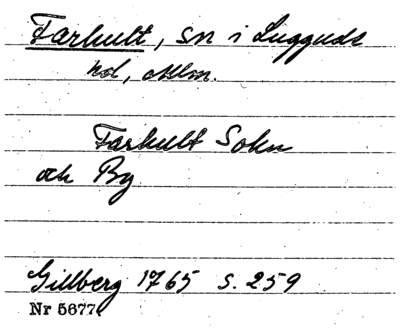 Farhult, sn i Luggude
hd, Mlm.
Farhult Sokn
och By
Gillberg 1765 s. 259
Nr 5677